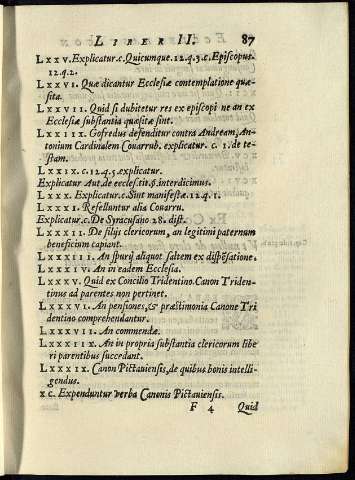 LIBER II. 87
LXXV. Explicatur.c. Quicumque. 12.q.3.c. Episcopus.
12.q.2.
LXXVI. Quæ dicantur Ecclesiæ contemplatione quæ-
sita.
LXXVII. Quid si dubitetur res ex episcopi ne an ex
Ecclesiæ substantia quæsitæ sint.
LXXIIX. Gofredus defenditur contra Andream, An-
tonium Cardinalem Couarrub. explicatur. c. 1. de te-
stam.
LXXIX. c. 12.q.5. explicatur.
Explicatur Aut. de eccles. tit. §. interdicimus.
LXXX. Explicatur c. Sint manifestæ. 12.q.1.
LXXXI. Reselluntur alia Couarru.
Explicatur.c. De Syracusano 28. dist.
LXXXII. De filijs clericorum, an legitimi paternum
beneficium capiant.
LXXXIII. An spurij aliquot saltem ex dispēsatione.
LXXXIV. An in eadem Ecclesia.
LXXXV. Quid ex Concilio Tridentino. Canon Triden-
tinus ad parentes non pertinet.
LXXXVI. An pensiones, & præstimonia Canone Tri
dentino comprehendantur.
LXXXVII. An commendæ.
LXXXIIX. An in propria substantia clericorum libe
ri parentibus succedant.
LXXXIX. Canon Pictauiensis, de quibus bonis intelli-
gendus.
XC. Expenduntur verba Canonis Pictauiensis.
F 4 Quid